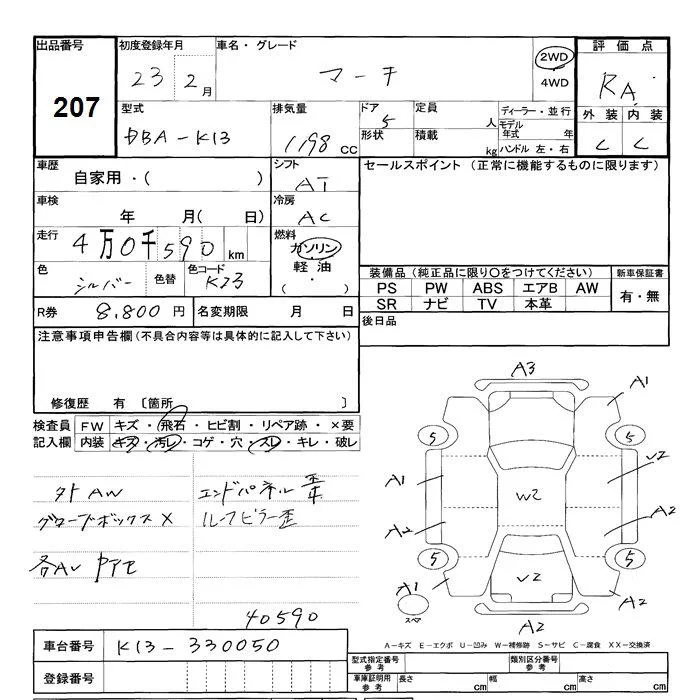 出品番号
207
初度登録年月
23 2月
車名・グレード
マーチ
2WD
4WD
評価点
RA
外装 内装
C C
型式
DBA-K13
排気量
1198 cc
ドア
5
形状
定員
人
積載
kg
ディーラー・並行
モデル年式 年
ハンドル 左・右
車歴
自家用・( )
シフト
AT
車検
年 月( 日)
冷房
AC
走行
4万0千590 km
燃料
ガソリン
軽油
( ・ )
色
シルバー
色替
色コード
K23
R券 8,800円
名変期限 月 日
セールスポイント (正常に機能するものに限ります)
装備品(純正品に限り〇をつけてください)
PS PW ABS エアB AW
SR ナビ TV 本革
新車保証書
有・無
後日品
注意事項申告欄(不具合内容等は具体的に記入して下さい)
修復歴 有 〔箇所 〕
検査員記入欄
FW キズ・飛石・ヒビ割・リペア跡・×要
内装 キズ・汚レ・コゲ・穴・スレ・キレ・破レ
外AW
グローブボックスX
エンドパネル
ルーフピラー歪
40590
A3
A1
5 5
A1 U2
W2
A2 A2
5 5
A1 V2 A2
スペア
A2
A-キズ E-エクボ U-凹み W-補修跡 S-サビ C-腐食 XX-交換済
車台番号 K13-330050
登録番号
型式指定番号参考
類別区分番号参考
車庫証明用参考
長さ cm 幅 cm 高さ cm